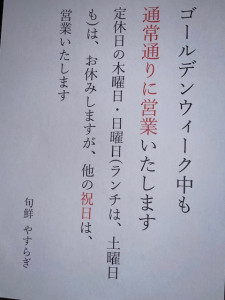 ゴールデンウィーク中も
通常通りに営業いたします
定休日の木曜日・日曜日(ランチは、土曜日
も)は、お休みしますが、他の祝日は、
営業いたします
旬鮮 やすらぎ